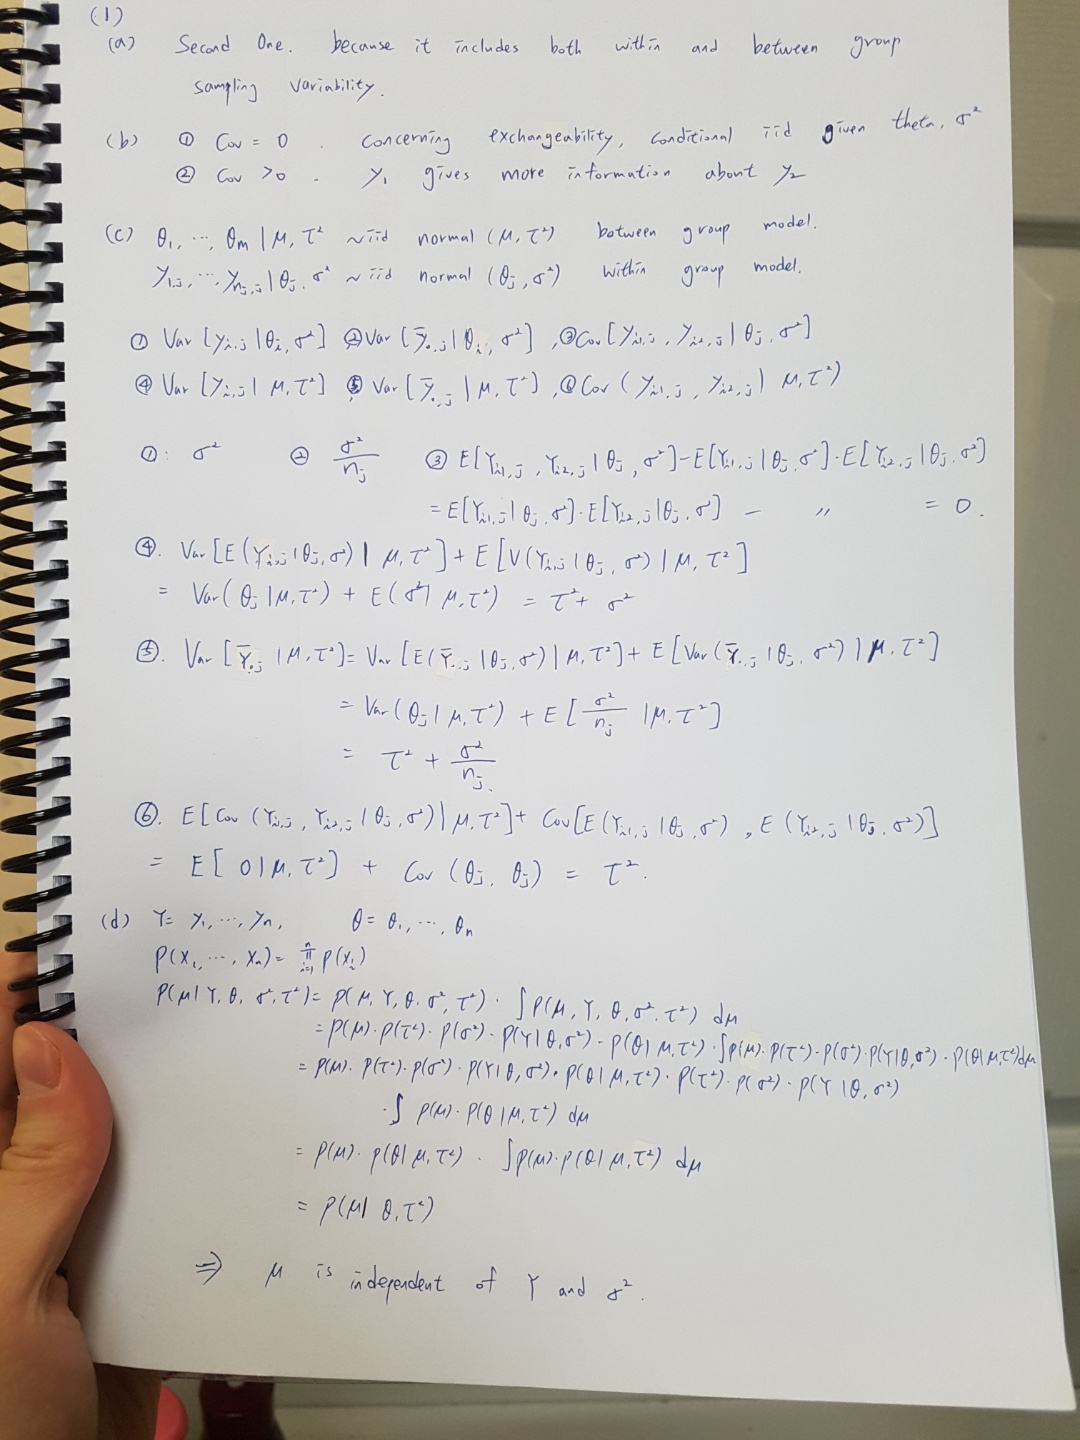 (1)
(a) Second One. because it includes both within and between group
sampling variability.
(b) ① Cov = 0 . concerning exchangeability, conditional iid given theta, σ²
② Cov >0 . y₁ gives more information about y₂
(c) θ₁, ..., θm | μ, τ² ~iid normal (μ, τ²) between group model.
y₁,j, ... ynj,j | θj, σ² ~iid normal (θj, σ²) within group model.
① Var [yi,j | θi, σ²] ② Var [ȳ.,j | θi, σ²] , ③ Cov [yi1,j , yi2,j | θj, σ²]
④ Var [yi,j | μ, τ²] ⑤ Var [ȳ.,j | μ, τ²] , ⑥ Cov (yi1,j , yi2,j | μ, τ²)
①: σ² ② σ²/nj ③ E[Yi1,j , Yi2,j | θj , σ²] - E[Yi1,j | θj, σ²] · E[Yi2,j | θj, σ²]
= E[Yi1,j | θj, σ²] · E[Yi2,j | θj, σ²] - 〃 = 0.
④. Var [E (Yi,j | θj, σ²) | μ, τ²] + E [V(Yi,j | θj, σ²) | μ, τ²]
= Var( θj | μ, τ²) + E (σ² | μ, τ²) = τ² + σ²
⑤. Var [Ȳ.,j | μ, τ²] = Var [E(Ȳ.,j | θj, σ²) | μ, τ²] + E [Var (Ȳ.,j | θj, σ²) | μ, τ²]
= Var (θj | μ, τ²) + E [ σ²/nj | μ, τ²]
= τ² + σ²/nj.
⑥. E[ Cov (Yi,j , Yi2,j | θj, σ²) | μ, τ²] + Cov[E (Yi1,j | θj, σ²) , E (Yi2,j | θj, σ²)]
= E [ 0 | μ, τ²] + Cov (θj, θj) = τ².
(d) Y= y₁, ..., yn, θ= θ₁, ..., θn
P(x₁, ..., xn) = ∏ᵢ₌₁ⁿ P(xi)
P(μ | Y, θ, σ², τ²) = P(μ, Y, θ, σ², τ²) · ∫ P(μ, Y, θ, σ², τ²) dμ
= P(μ) · P(τ²) · P(σ²) · P(Y | θ, σ²) · P(θ | μ, τ²) · ∫ P(μ) · P(τ²) · P(σ²) · P(Y | θ, σ²) · P(θ | μ, τ²) dμ
= P(μ) · P(τ²) · P(σ²) · P(Y | θ, σ²) · P(θ | μ, τ²) · P(τ²) · P(σ²) · P(Y | θ, σ²)
· ∫ P(μ) · P(θ | μ, τ²) dμ
= P(μ) · P(θ | μ, τ²) · ∫ P(μ) · P(θ | μ, τ²) dμ
= P(μ | θ, τ²)
⇒ μ is independent of Y and σ².